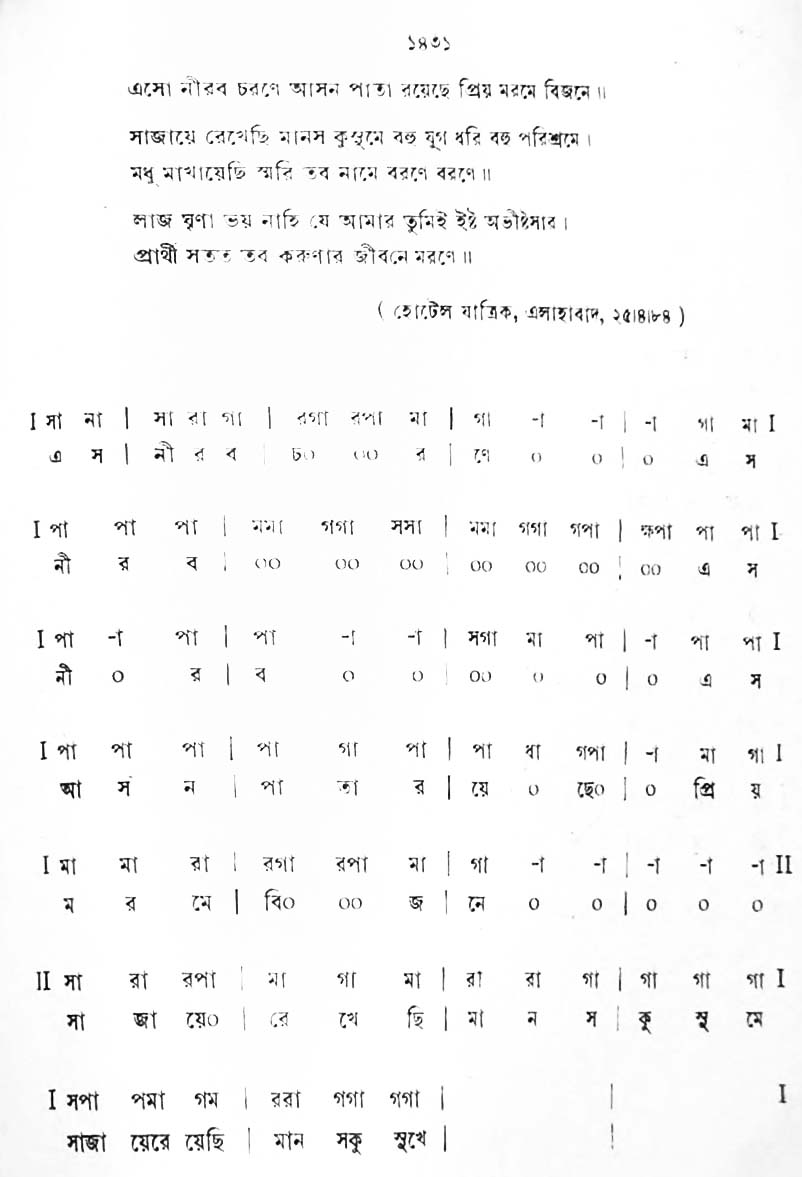 ১৪৩১
এসো নীরব চরণে আসন পাতা রয়েছে প্রিয় মরমে বিজনে॥
সাজায়ে রেখেছি মানস কুসুমে বহু যুগ ধরি বহু পরিশ্রমে।
মধু মাখায়েছি স্মরি তব নামে বরণে বরণে॥
লাজ ঘৃণা ভয় নাহি যে আমার তুমিই ইষ্ট অভীষ্টসার।
প্রার্থী সতত তব করুণার জীবনে মরণে॥
( হোটেল যাত্রিক, এলাহাবাদ, ২৫।৪।৮৪ )
I সা না | সা রা গা | রগা রপা মা | গা -া -া | -া গা মা I
এ স | নী র ব | চ০ ০০ র | ণে ০ ০ | ০ এ স
I পা পা পা | মমা গগা সসা | মমা গগা গপা | ক্ষপা পা পা I
নী র ব | ০০ ০০ ০০ | ০০ ০০ ০০ | ০০ এ স
I পা -া পা | পা -া -া | সগা মা পা | -া পা পা I
নী ০ র | ব ০ ০ | ০০ ০ ০ | ০ এ স
I পা পা পা | পা গা পা | পা ধা গপা | -া মা গা I
আ স ন | পা তা র | য়ে ০ ছে০ | ০ প্রি য়
I মা মা রা | রগা রপা মা | গা -া -া | -া -া -া II
ম র মে | বি০ ০০ জ | নে ০ ০ | ০ ০ ০
II সা রা রপা | মা গা মা | রা রা গা | গা গা গা I
সা জা য়ে০ | রে খে ছি | মা ন স | কু সু মে
I সপা পমা গম | ররা গগা গগা | | I
সাজা য়েরে য়েছি | মান সকু সুখে | |